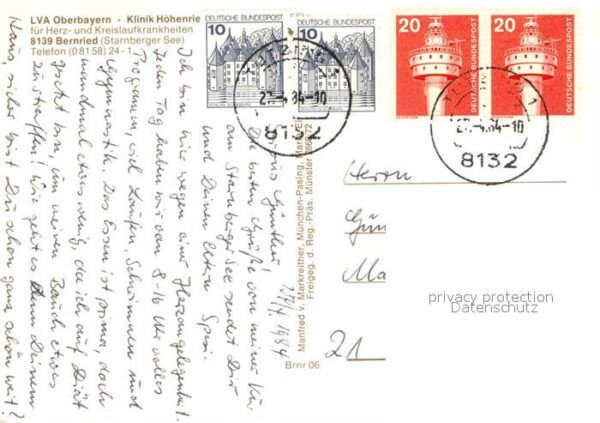 LVA Oberbayern - Klinik Höhenrie
für Herz- und Kreislaufkrankheiten
8139 Bernried (Starnberger See)
Telefon (0 81 58) 24-1
Günther,
Die besten Grüße von meiner Kur
am Starnberger See sendet Dir
und Deinen Eltern
Ich bin hier wegen einer Herzangelegenheit.
Jeden Tag haben wir von 8-16 Uhr volles
Programm, viel Laufen, Schwimmen und
Gymnastik. Das Essen ist prima, doch
manchmal etwas wenig, da ich auf Diät
gesetzt bin, um meinen Bauch etwas
zu straffen! Wie geht es denn Deinem
Klaus, sicher bist Du schon ganz schön weit?
27/4 1984
Manfred v. Markreither, München-Pasing,
Freigeg. d. Reg.-Präs. Münster
Brnr 06
10
DEUTSCHE BUNDESPOST
10
DEUTSCHE BUNDESPOST
20
DEUTSCHE BUNDESPOST
20
DEUTSCHE BUNDESPOST
TUTZING 1
27.4.84-10
8132
27.4.84-10
8132
Herrn
Gün
Ma
21
privacy protection
Datenschutz